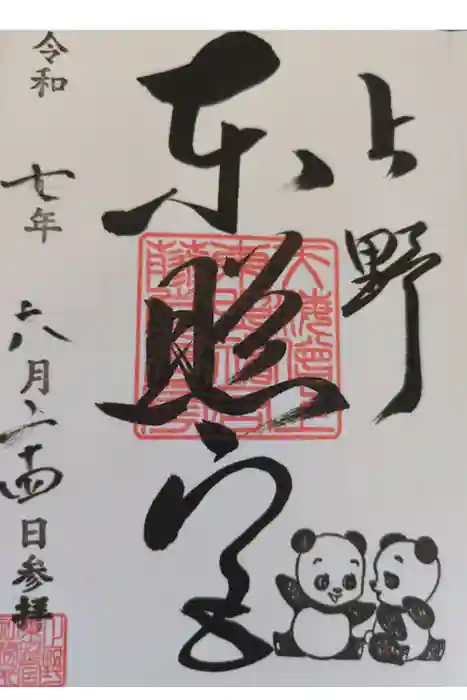 上野
東照宮
令和七年六月二十四日参拝